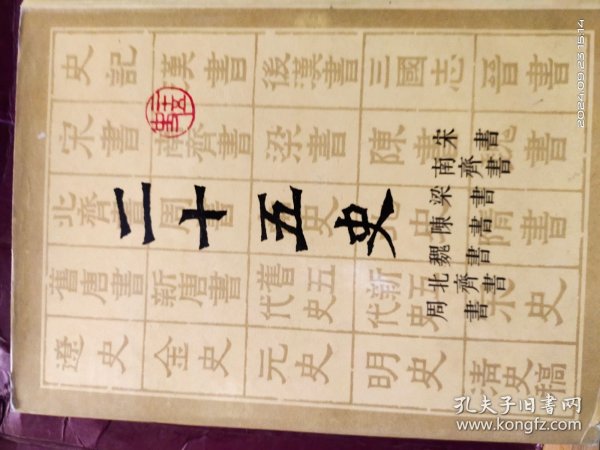 二十五史
宋書
南齊書
梁書
陳書
魏書
北齊書
周書
史記 漢書 後漢書 三國志 晉書
宋書 南齊書 梁書 陳書 魏書
北齊書 周書 南史 北史 隋書
舊唐書 新唐書 舊五代史 新五代史 宋史
遼史 金史 元史 明史 清史稿
2024.09.23 15:14
孔夫子旧书网
www.kongfz.com